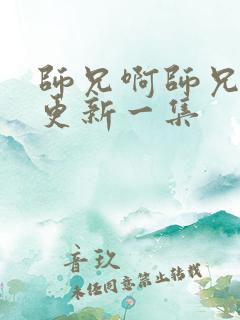 師兄啊師兄
更新一集
音玖
未经同意禁止转载